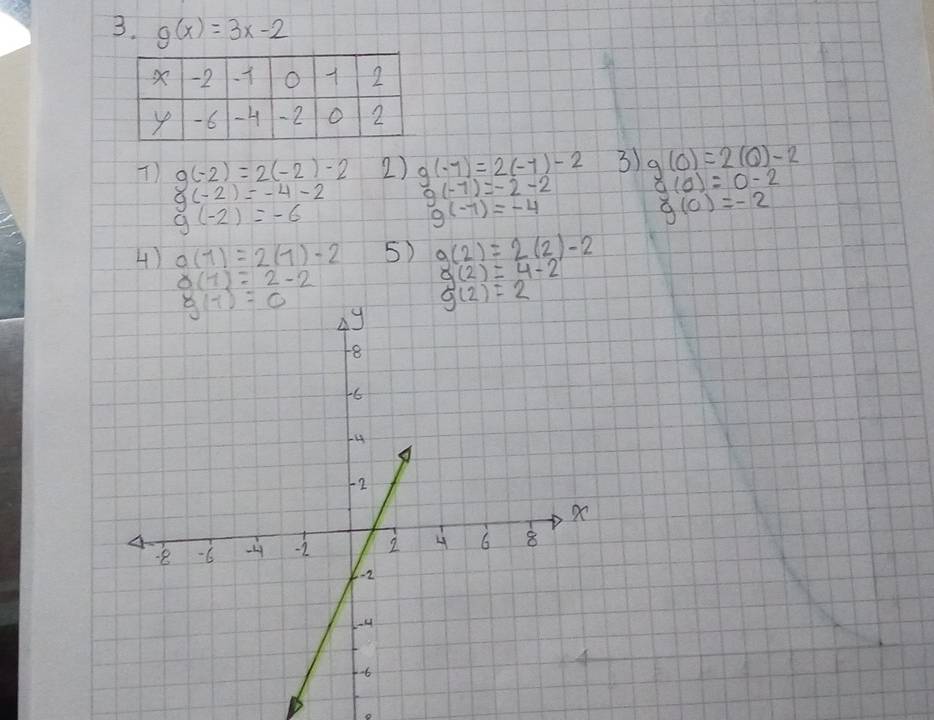 3. g(x) = 3x-2
x -2 -1 0 1 2
y -6 -4 -2 0 2
1) g(-2) = 2(-2)-2 2) g(-1) = 2(-1)-2 3) g(0) = 2(0)-2
g(-2) = -4-2 g(-1) = -2-2 g(0) = 0-2
g(-2) = -6 g(-1) = -4 g(0) = -2
4) g(1) = 2(1)-2 5) g(2) = 2(2)-2
g(1) = 2-2 g(2) = 4-2
g(1) = 0 g(2) = 2
y
8
6
4
2
x
-8 -6 -4 -2 2 4 6 8
-2
-4
-6